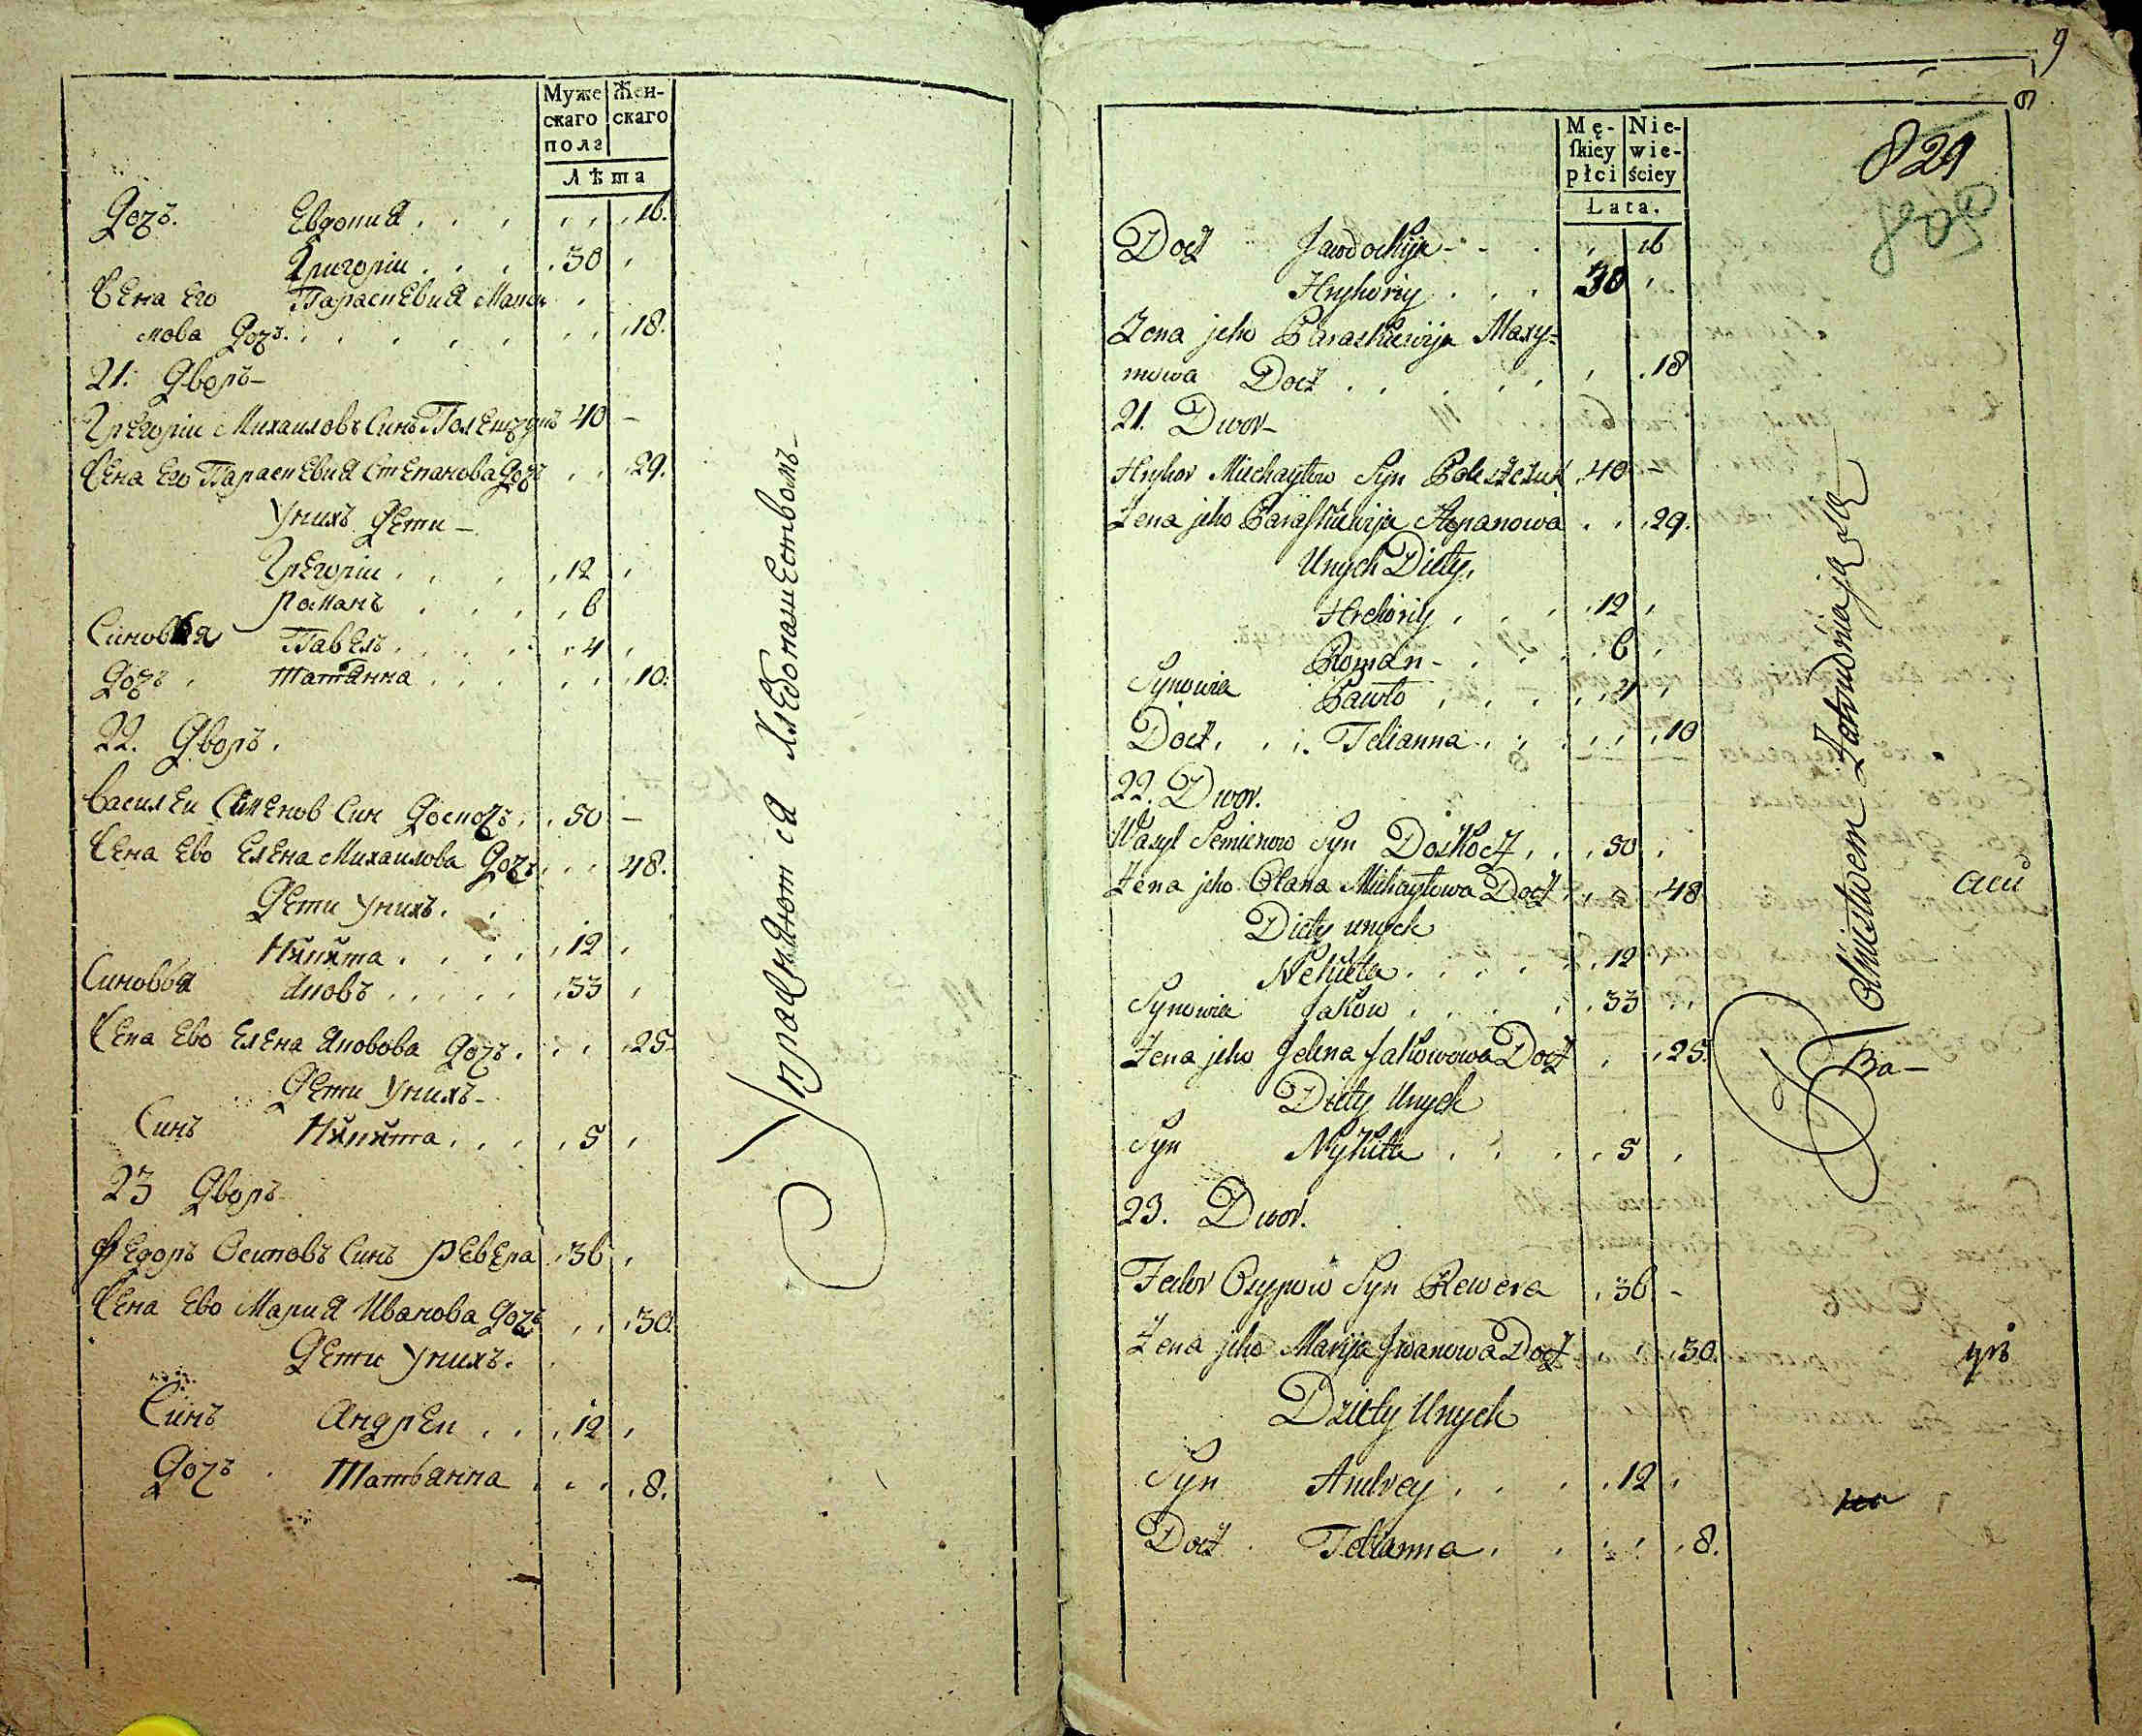 Муже Жен-
скаго скаго
пола
Лѣта
Дочь. Евдокиѧ . . . . . . 16.
Григоріи . . . . 30 .
Жена Его Параскевиѧ Макси
мова Дочъ. . . . . . . . 18.
21. Дворъ-
Грегоріи Михаиловъ Синъ Полещукъ 40 -
Жена Его Параскевиѧ Степанова Дочъ . . 29.
Унихъ Дети -
Грегоріи . . . . 12 .
Романъ . . . . 6
Синовья Павелъ . . . . 4 .
Дочъ . Татѧнна . . . . . 10.
22. Дворъ.
Василеи Семенов Син Доскочъ . . 50 -
Жена Ево Елена Михаилова Дочъ . . . 48.
Дети унихъ. .
Никита . . . . . 12 .
Синовья Яковъ . . . . . 33 .
Жена Ево Елена Яковова Дочъ . . . . 25.
Дети Унихъ-
Синъ Никита . . . . 5 .
23 Дворъ
Федоръ Осиповъ Синъ Ревера . 36 .
Жена Ево Мариѧ Иванова Дочъ . . . 30.
Дети Унихъ.
Синъ Андреи . . . 12 .
Дочъ . Татьянна . . . . 8.
Упражнѧютсѧ Хлебопашествомъ-
9
829
809
Mę- Nie-
ſkiey wie-
płci ściey
Lata.
Docz Jawdochija - - . . 16
Hryhoriy . . . 30 .
Żena jeho Paraskiewija Maxy-
mowa Docz . . . . . . . 18
21. Dwor-
Hryhor Michayłow Syn Poleszczuk . 40 -
Żena jeho Paraskiewija Stepanowa . . . 29.
Unych Diety.
Hrehoriy . . . . 12 .
Roman - . . . . 6 .
Synowia Pawło . . . . . 4 .
Docz . . . Tetianna . . . . . . 10
22. Dwor.
Wasyl Semienow Syn Doskocz . . . 50 .
Żena jeho Olana Michayłowa Docz . . . 48
Diety unych
Nekieta . . . . . . 12 .
Synowia Jakow . . . . . 33 . .
Żena jeho Jelena Jakowowa Docz . . . 25.
Diety Unych
Syn Nykita . . . . . 5 .
23. Dwor.
Fedor Osypow Syn Rewera . 36 -
Żena jeho Marija Iwanowa Docz . . . 30.
Dziety Unych
Syn Andrey . . . . 12 .
Docz . Tetianna . . . . . . 8.
Rolnictwem Zatrudniają się
аси
Ва-